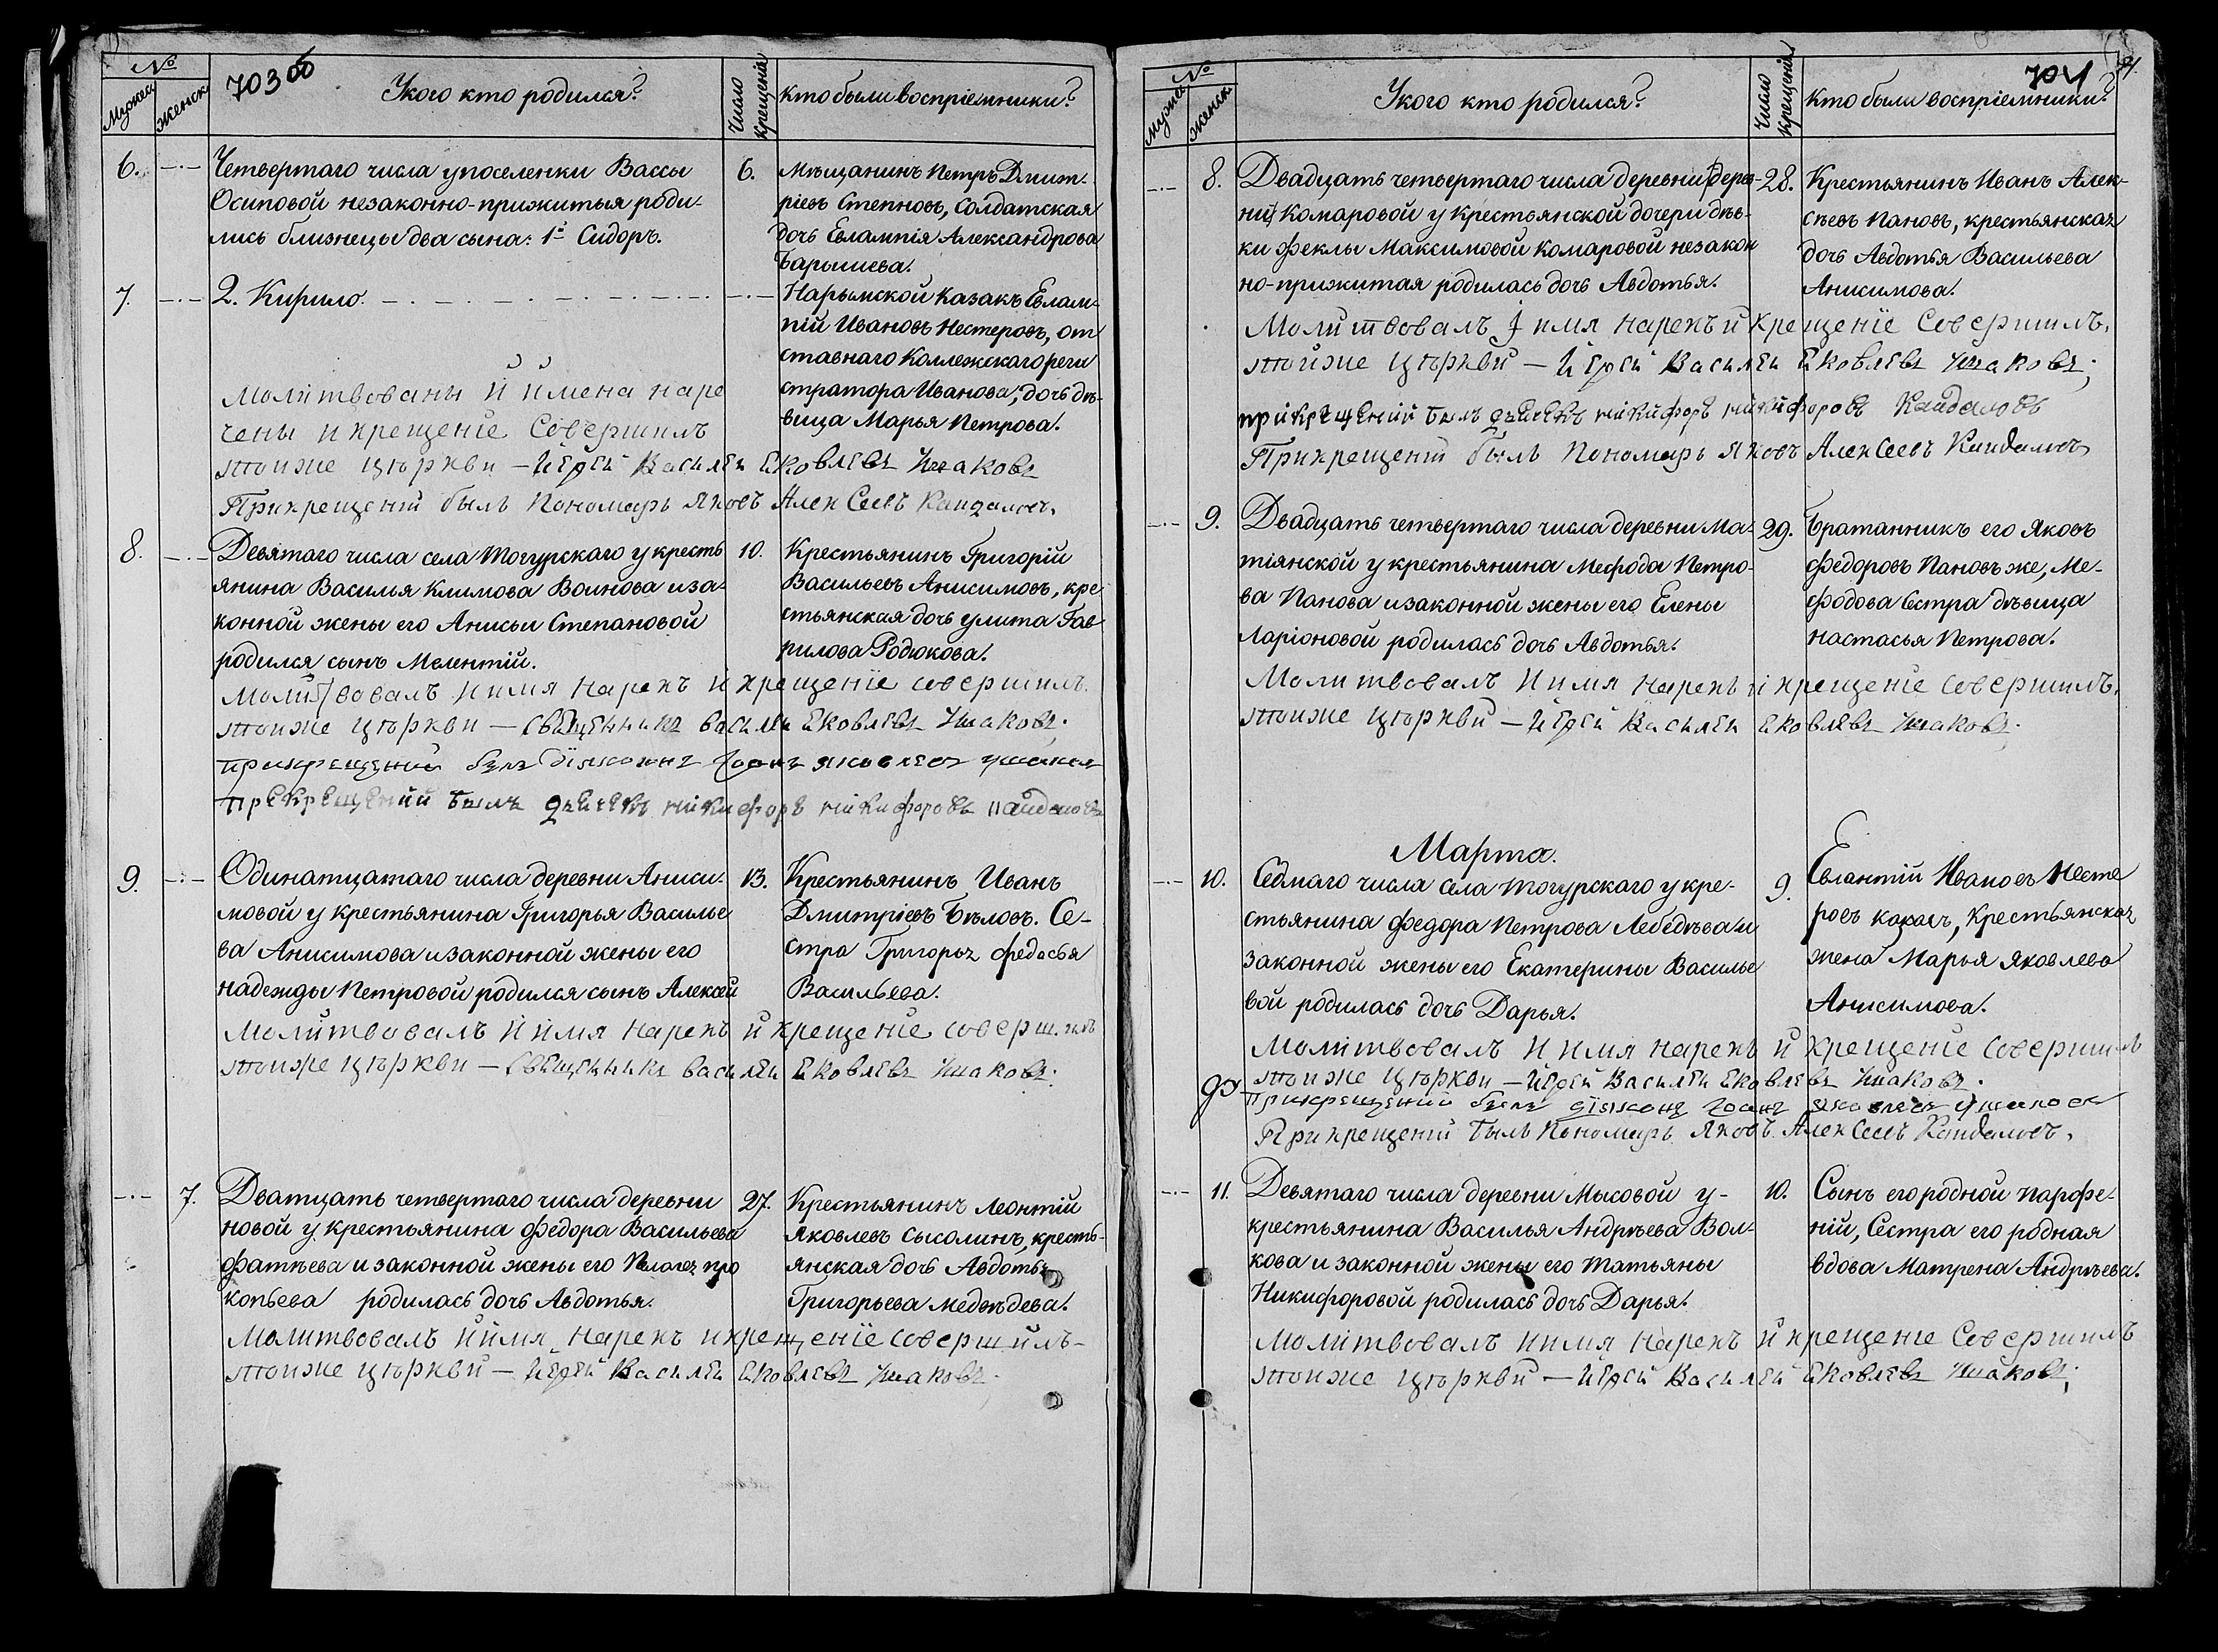 703 об
№
Мужеск
женск
Укого кто родился?
Число крещенія
Кто были воспріемники?
6. 6.
Четвертаго числа упоселенки Вассы
Осиповой незаконно-прижитыя роди-
лись близнецы два сына: 1й Сидоръ.
Мѣщанинъ Петръ Дмит-
ріевъ Степновъ, Солдатская
дочь Евлампія Александрова
Барышева.
7.
2. Кирило.
Нарымской Казакъ Евлам-
пій Ивановъ Нестеровъ, от
ставнаго Коллежскаго реги
стратора Иванова, дочь дѣ-
вица Марья Петрова.
Молитвованы и имена наре
чены и крещеніе Совершилъ
тоиже церкви — Иерей Василеи Яковлевъ Ушаковъ
Прикрещеніи былъ Пономарь Яковъ Алексеевъ Кайдаловъ.
8. 10.
Девятаго числа села Тогурскаго у кресть
янина Василья Климова Воинова иза-
конной жены его Анисьи Степановой
родился сынъ Мелентій.
Крестьянинъ Григорій
Васильевъ Анисимовъ, кре
стьянская дочь Улита Гав
рилова Родюкова.
Молитвовалъ и имя нарекъ и крещеніе совершилъ.
тоиже церкви — Священникъ Василеи Яковлевъ Ушаковъ.
прикрещении былъ Дїяконъ Іоанъ Яковлевъ Ушаковъ
прекрещений былъ дьячекъ никифоръ никифоровъ Кайдаловъ
9. 13.
Одинатцатаго числа деревни Аниси-
мовой у крестьянина Григорья Василье
ва Анисимова изаконной жены его
Надежды Петровой родился сынъ Алексѣй
Крестьянинъ Иванъ
Дмитріевъ Бѣловъ. Се-
стра Григорья Федосья
Васильева.
Молитвовалъ и имя нарекъ и крещеніе совершилъ
тоиже церкви — Священникъ Василеи Яковлевъ Ушаковъ.
7. 27.
Дватцать четвертаго числа деревни
новой у крестьянина Федора Васильева
Фатѣева и законной жены его Пелагеи про
копьева родилась дочь Авдотья.
Крестьянинъ Леонтій
Яковлевъ Сысолинъ, кресть-
янская дочь Авдотья
Григорьева Медвѣдева.
Молитвовалъ и имя нарекъ и крещеніе совершилъ-
тоиже церкви — Иерей Василеи Яковлевъ Ушаковъ.
704
№
Мужес
женск.
Укого кто родился?
Число крещенія
Кто были воспріемники?
8. 28.
Двадцать четвертаго числа деревни (дерев-
ни) Комаровой у крестьянской дочери дѣв-
ки Феклы Максимовой Комаровой незакон
но-прижитая родилась дочь Авдотья.
Крестьянинъ Иванъ Алек-
сѣевъ Пановъ, крестьянская
дочь Авдотья Васильева
Анисимова.
Молитвовалъ и имя нарекъ и крещеніе Совершилъ.
тойже церкви — Иерей Василеи Яковлевъ Ушаковъ;
прикрещеній былъ дьячекъ никифоръ никифоровъ Кайдаловъ
Прикрещеніи былъ Пономарь Яковъ Алексеевъ Кайдаловъ
9. 29.
Двадцать четвертаго числа деревни Ма-
тіянской у крестьянина Мефода Петро-
ва Панова изаконной жены его Елены
Ларіоновой родилась дочь Авдотья.
Братанникъ его Яковъ
Федоровъ Пановъ же, Ме-
фодова Сестра дѣвица
Настасья Петрова.
Молитвовалъ и имя нарекъ и крещеніе совершилъ.
тоиже церкви — Иерей Василеи Яковлевъ Ушаковъ.
Марта.
10. 9.
Седмаго числа села Тогурскаго у кре-
стьянина Федора Петрова Лебедѣва и
законной жены его Екатерины Василье
вой родилась дочь Дарья.
Евлантій Ивановъ Несте
ровъ казакъ, Крестьянская
жена Марья Яковлева
Анисимова.
Молитвовалъ и имя нарекъ и крещеніе Совершилъ
тоиже церкви — Иерей Василеи Яковлевъ Ушаковъ.
прикрещении былъ дїяконъ Іоанъ Яковлевъ Ушаковъ
Прикрещеніи былъ Пономарь Яковъ Алексеевъ Кайдаловъ.
11. 10.
Девятаго числа деревни Мысовой у-
крестьянина Василья Андрѣева Вол-
кова и законной жены его Татьяны
Никифоровой родилась дочь Дарья.
Сынъ его родной Парфе-
ній, Сестра его родная
вдова Матрена Андрѣева.
Молитвовалъ и имя нарекъ и крещеніе Совершилъ
тоиже церкви — Иерей Василей Яковлевъ Ушаковъ;